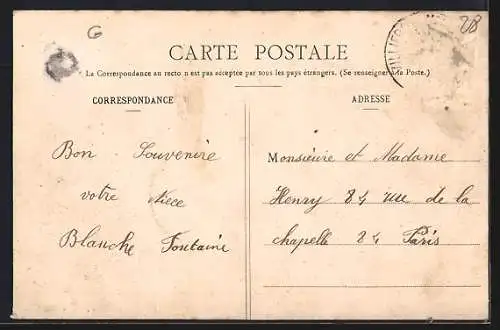 G
28
VILLIERS
CARTE POSTALE
La Correspondance au recto n'est pas acceptée par tous les pays étrangers. (Se renseigner à la Poste.)
CORRESPONDANCE
ADRESSE
Bon Souvenire
votre Niece
Blanche Fontaine
Monsieure et Madame
Henry 84 rue de la
chapelle 84 Paris